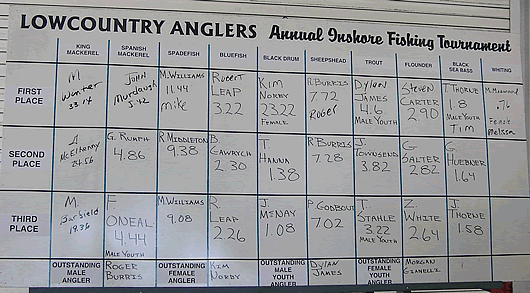 LOWCOUNTRY ANGLERS Annual Inshore Fishing Tournament
KING MACKEREL SPANISH MACKEREL SPADEFISH BLUEFISH BLACK DRUM SHEEPSHEAD TROUT FLOUNDER BLACK SEA BASS WHITING
FIRST PLACE
M. Winter 33.14
John Murdaugh 5.12
M. Williams 11.44 Mike
Robert LEAP 3.22
Kim Norby 23.22 FEMALE
R. Burris 7.72 Roger
Dylan JAMES 4.6 MALE YOUTH
Steven CARTER 2.90
T. THORNE 1.8 MALE YOUTH TIM
.76 Female Melissa
SECOND PLACE
McElhenny 24.56
G. Rumph 4.86
R Middleton 9.38
B. GAWRYCH 2.30
T. HANNA 1.38
R Burris 7.28
J. TOWNSEND 3.82
G. SALTER 2.82
G. HUEBNER 1.64
THIRD PLACE
M. Barfield 19.36
F ONEAL 4.44 MALE YOUTH
M. Williams 9.08
R. LEAP 2.26
J. McNAY 1.08
P GODBOUT 7.02
T. STAHLE 3.22 MALE YOUTH
Z. WHITE 2.64
J. THORNE 1.58
OUTSTANDING MALE ANGLER
ROGER BURRIS
OUTSTANDING FEMALE ANGLER
Kim NORBY
OUTSTANDING MALE YOUTH ANGLER
DYLAN JAMES
OUTSTANDING FEMALE YOUTH
MORGAN GIANELLI